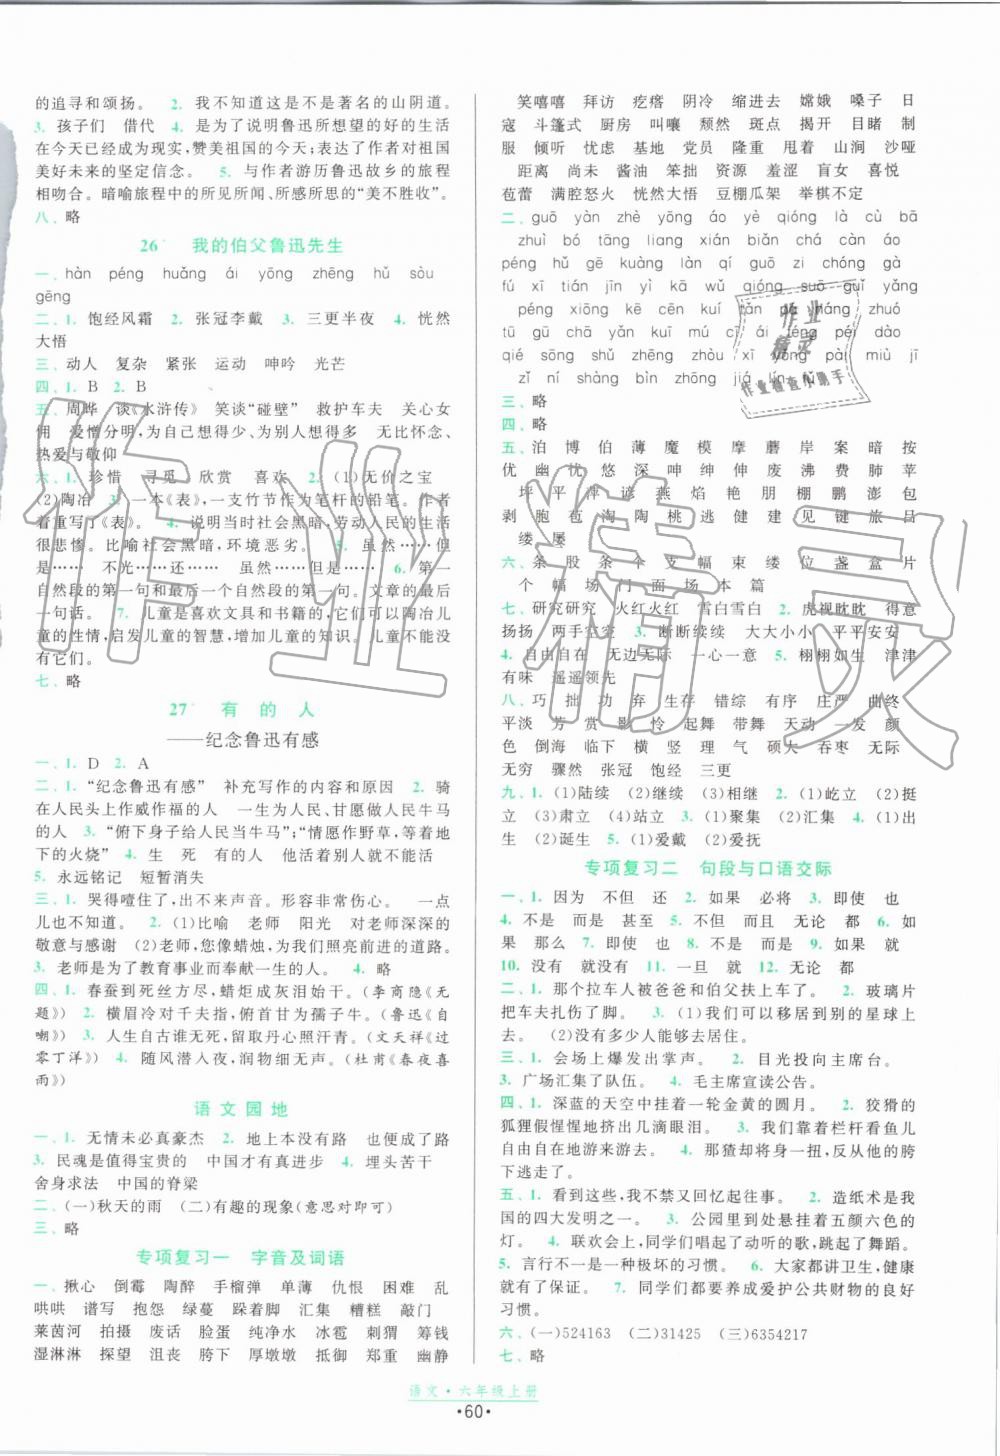 的追寻和颂扬。 2. 我不知道这是不是著名的山阴道。
3. 孩子们 借代 4. 是为了说明鲁迅所想望的好的生活
在今天已成为现实,赞美祖国的今天;表达了作者对祖国
美好未来的坚定信念。 5. 与作者游历鲁迅故乡的旅程
相吻合。暗喻旅程中的所见所闻、所感所思的“美不胜收”。
八、略
26 我的伯父鲁迅先生
一、hàn péng huǎng ái yōng zhēng hǔ sòu
gēng
二、1. 饱经风霜 2. 张冠李戴 3. 三更半夜 4. 恍然
大悟
三、动人 复杂 紧张 运动 呻吟 光芒
四、1. B 2. B
五、周晔 谈《水浒传》 笑谈“碰壁” 救护车夫 关心女
佣 爱憎分明,为自己想得少,为别人想得多 无比怀念、
热爱与敬仰
六、1. 珍惜 寻觅 欣赏 喜欢 2. (1)无价之宝
(2)陶冶 3. 一本《表》,一支竹节作为笔杆的铅笔。作者
着重写了《表》。 4. 说明当时社会黑暗,劳动人民的生活
很悲惨。比喻社会黑暗,环境恶劣。 5. 虽然……但
是…… 不光……还…… 虽然……但是…… 6. 第一
自然段的第一句和最后一个自然段的第一句。文章的最后
一句话。 7. 儿童是喜欢文具和书籍的,它们可以陶冶儿
童的性情,启发儿童的智慧,增加儿童的知识。儿童不能没
有它们。
七、略
27 有的人
——纪念鲁迅有感
一、1. D 2. A
二、1. “纪念鲁迅有感” 补充写作的内容和原因 2. 骑
在人民头上作威作福的人 一生为人民、甘愿做人民牛马
的人 3. “俯下身子给人民当牛马”;“情愿作野草,等着
地下的火烧” 4. 生 死 有的人 他活着别人就不能活
5. 永远铭记 短暂消失
三、1. 哭得噎住了,出不来声音。形容非常伤心。 一点
儿也不知道。 2. (1)比喻 老师 阳光 对老师深深的
敬意与感谢 (2)老师,您像蜡烛,为我们照亮前进的道路。
3. 老师是为了教育事业而奉献一生的人。 4. 略
四、1. 春蚕到死丝方尽,蜡炬成灰泪始干。(李商隐《无
题》) 2. 横眉冷对千夫指,俯首甘为孺子牛。(鲁迅《自
嘲》) 3. 人生自古谁无死,留取丹心照汗青。(文天祥《过
零丁洋》) 4. 随风潜入夜,润物细无声。(杜甫《春夜喜
雨》)
语文园地
一、1. 无情未必真豪杰 2. 地上本没有路 也便成了路
3. 民魂是值得宝贵的 中国才有真进步 4. 埋头苦干
舍身求法 中国的脊梁
二、(一)秋天的雨 (二)有趣的现象(意思对即可)
三、略
专项复习一 字音及词语
一、揪心 倒霉 陶醉 手榴弹 单薄 仇恨 困难 乱
哄哄 谱写 抱怨 绿蔓 跺着脚 汇集 糟糕 敲门
莱茵河 拍摄 废话 脸蛋 纯净水 冰雹 刺猬 筹钱
湿淋淋 探望 沮丧 胯下 厚墩墩 抵御 郑重 幽静
笑嘻嘻 拜访 疙瘩 阴冷 缩进去 嫦娥 嗓子 日
寇 斗篷式 厨房 叫嚷 颓然 斑点 揭开 目睹 制
服 倾听 忧虑 基地 党员 隆重 甩着 山涧 沙哑
距离 尚未 酱油 笨拙 资源 羞涩 盲女 喜悦
苞蕾 满腔怒火 恍然大悟 豆棚瓜架 举棋不定
二、guō yàn zhè yōng áo yè qióng là cù bā
zhuì bó tí dēng liáng xūn lài cháo còu
hǒng gě kuàng làn qì chóng chōng gēng jǐng
fú xī tián jīn yì kǎ wǔ qióng suō guī yǔ
péng xiōng kē cēn kuí tǎn pá háng zhuó
tū gū chā yǎn kuī mú cí ái téng péi dào
biān bǎo shī shǔ zhēng luò xī yǒng pò jiū xī
zǐ ní shàng bìn zhēng jiá lín lǐ
三、略
四、略
五、泊 博 伯 薄 魔 模 摩 蘑 岸 案 暗 按
优 幽 忧 悠 深 呻 绅 伸 废 沸 费 肺 苹
坪 平 萍 谚 燕 焰 艳 朋 棚 鹏 澎 包
剥 胞 苞 淘 陶 桃 逃 健 建 见 键 旅 吕
缕 屡
六、条 股 条 个 支 幅 束 缕 位 盏 盒 片
个 幅 场 门 面 场 本 篇
七、1. 研究研究 火红火红 雪白雪白 2. 虎视眈眈 得意
扬扬 两手空空 3. 断断续续 大大小小 平平安安
4. 自由自在 无边无际 一心一意 5. 栩栩如生 津津
有味 遥遥领先
八、巧 拙 功 弃 生存 错综 有序 庄严 曲终
平淡 芳 赏 影 怜 起舞 带舞 天动 一发 颜
色 倒海 临下 横 竖 理 气 硕大 吞枣 无际
无穷 骤然 张冠 饱经 三更
九、1. (1)陆续 (2)继续 (3)相继 2. (1)屹立 (2)挺
立 (3)肃立 (4)站立 3. (1)聚集 (2)汇集 4. (1)出
生 (2)诞生 5. (1)爱戴 (2)爱抚
专项复习二 句段与口语交际
一、1. 因为 不但 还 2. 如果 必将 3. 即使 也
4. 不是 而是 甚至 5. 不但 而且 无论 都 6. 如
果 那么 7. 即使 也 8. 不是 而是 9. 如果 就
10. 没有 就没有 11. 一旦 就 12. 无论 都
二、1. 那个拉车人被爸爸和伯父扶上车了。 2. 玻璃片
把车夫扎伤了脚。 3. (1)我们可以移居到别的星球上
去。 (2)没有多少人能够去居住。
三、1. 会场上爆发出掌声。 2. 目光投向主席台。
3. 广场汇集了队伍。 4. 毛主席宣读公告。
四、1. 深蓝的天空中挂着一轮金黄的圆月。 2. 狡猾的
狐狸假惺惺地挤出几滴眼泪。 3. 我们靠着栏杆看鱼儿
自由自在地游来游去。 4. 那猹却将身一扭,反从他的胯
下逃走了。
五、1. 看到这些,我不禁又回忆起往事。 2. 造纸术是我
国的四大发明之一。 3. 公园里到处悬挂着五颜六色的
灯。 4. 联欢会上,同学们唱起了动听的歌,跳起了舞蹈。
5. 言行不一是一种极坏的习惯。 6. 大家都讲卫生,健康
就有了保证。 7. 同学们要养成爱护公共财物的良好
习惯。
六、(一)524163 (二)31425 (三)6354217
七、略
语文·六年级上册
·60·
作业精灵
作业检查小助手